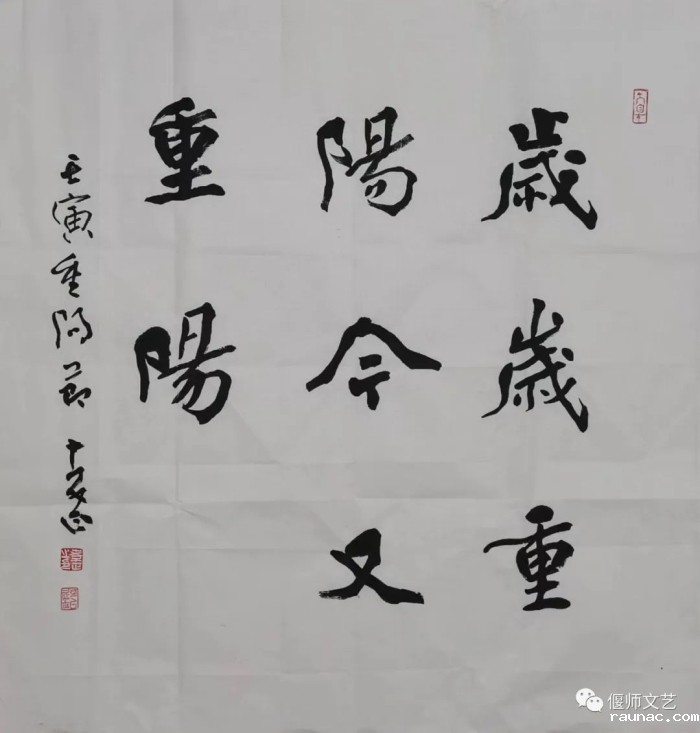 歲歲重
陽今又
重陽
壬寅重陽節
偃师文艺
raunac.com